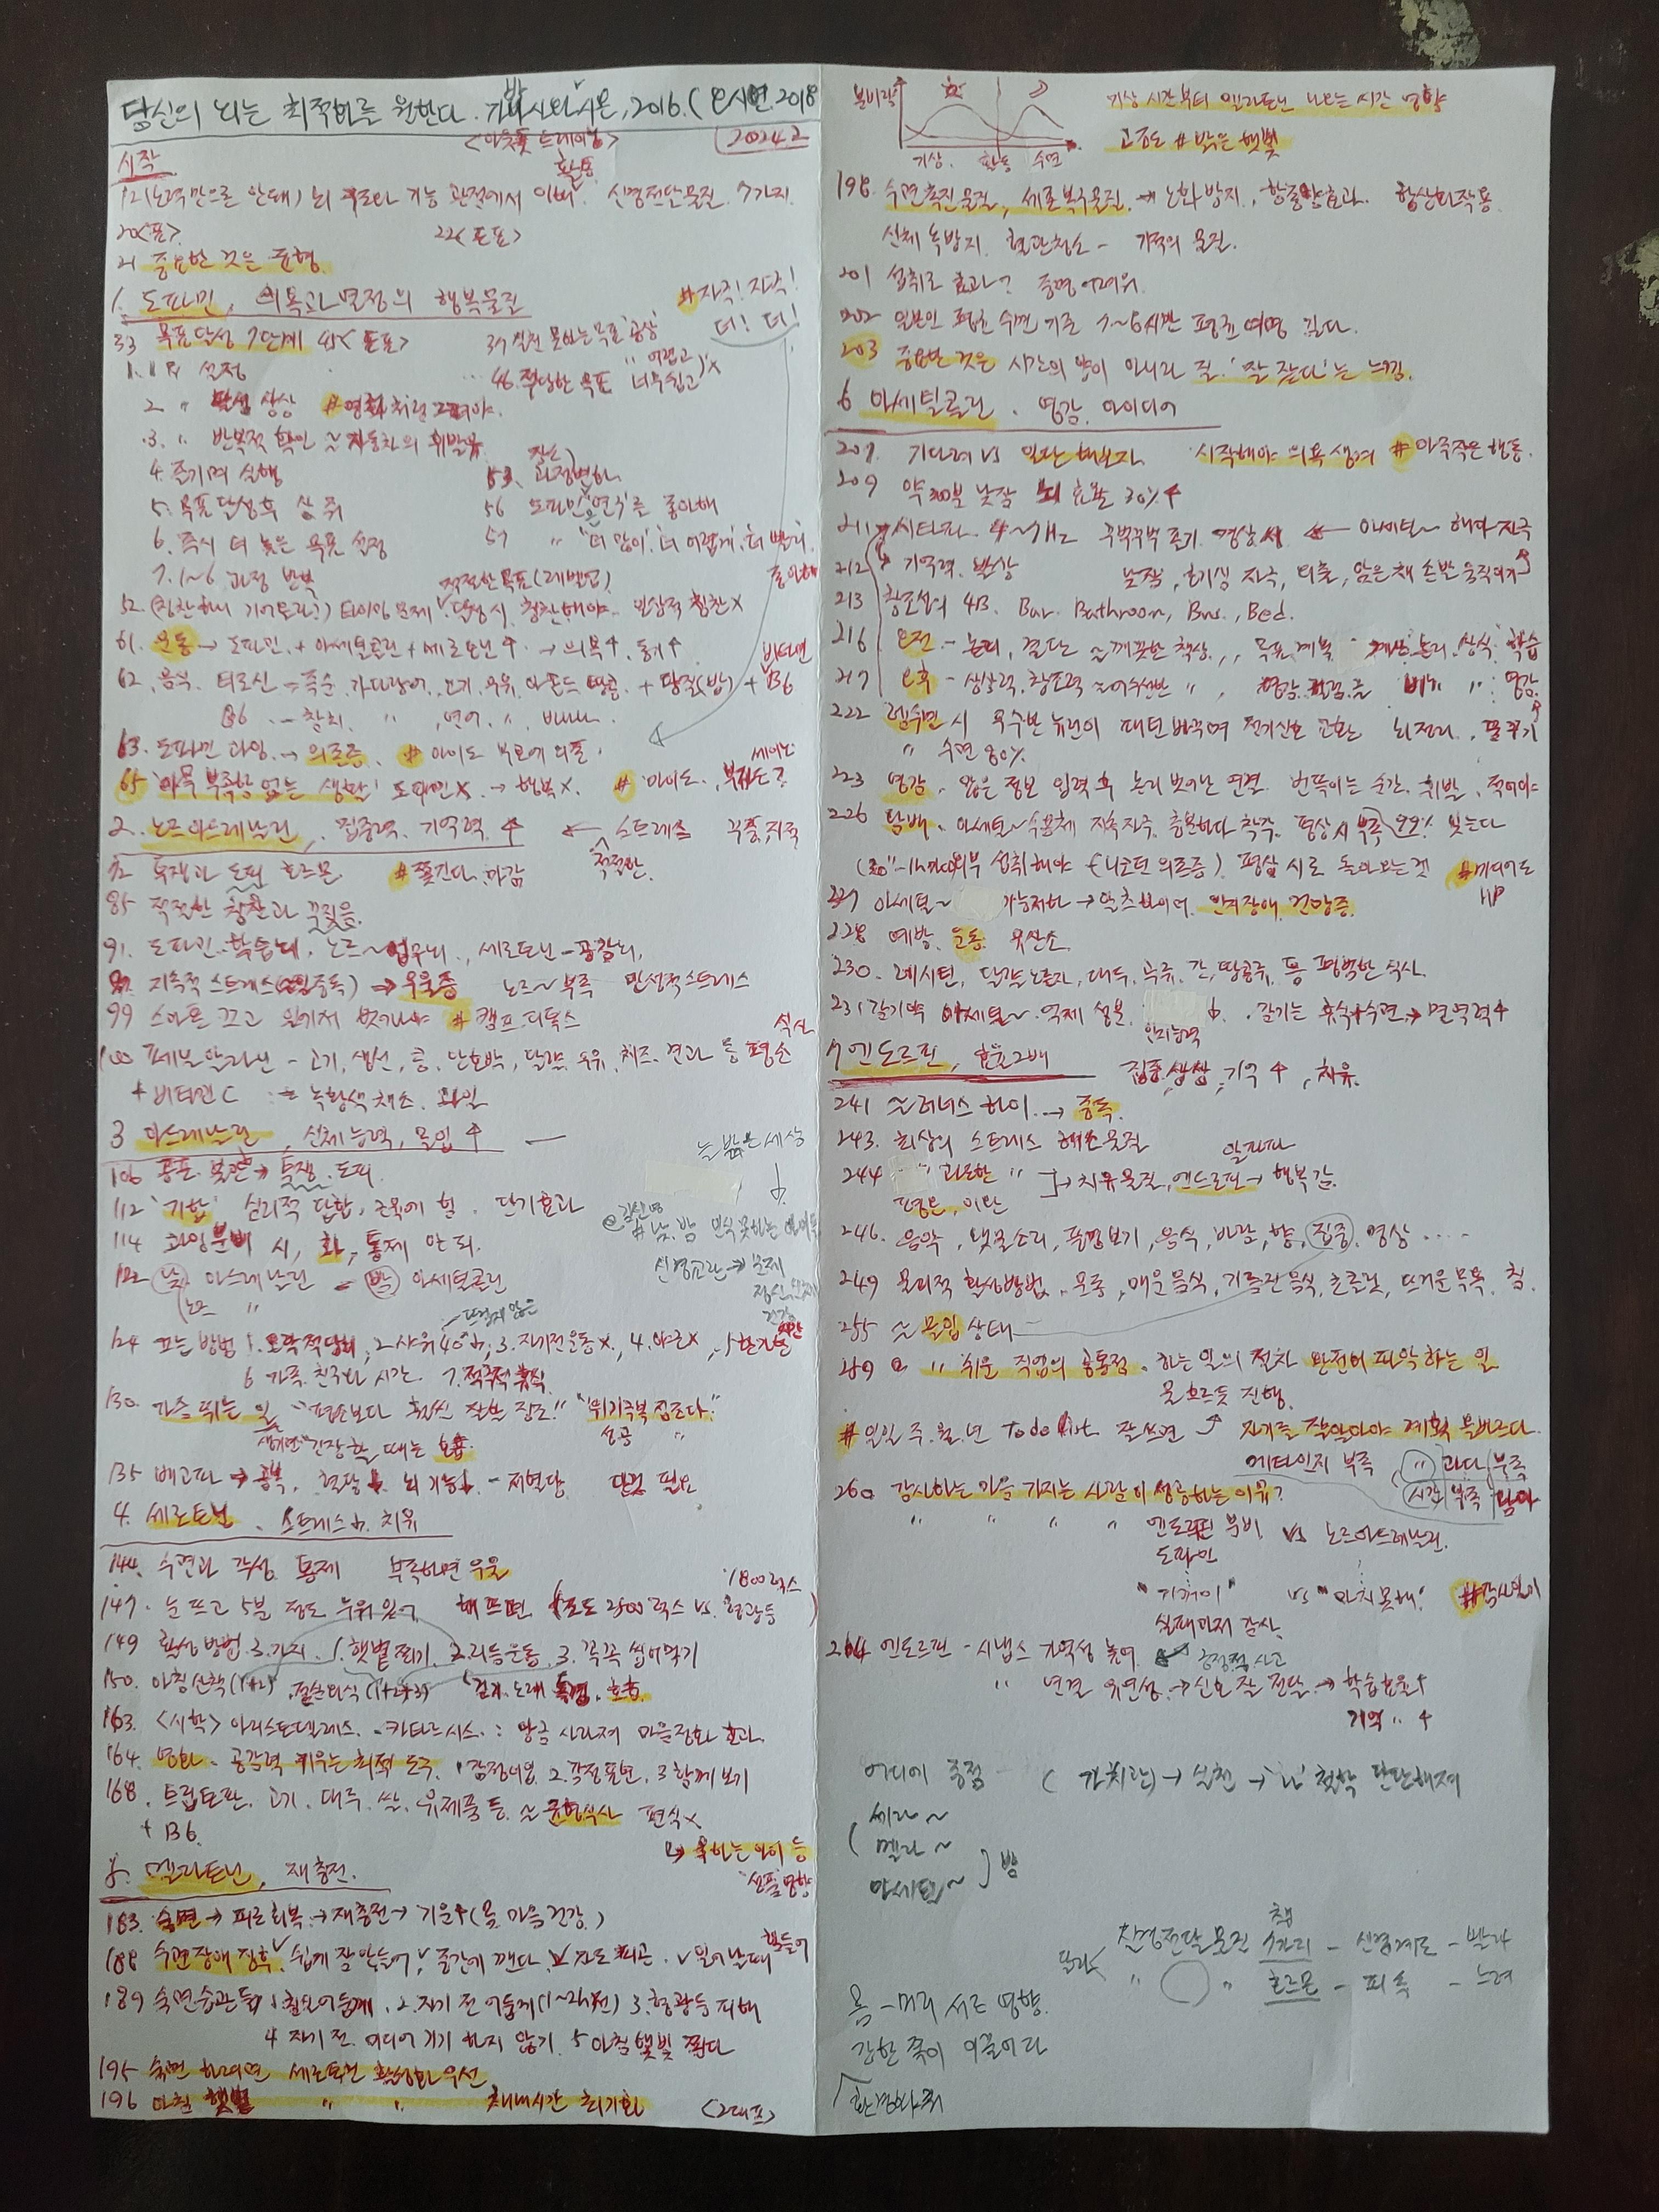 당신의 뇌는 최적화를 원한다. 가바사와 시온, 2016. ( 쌤앤 2018
<아웃풋 트레이닝>
2024.2
시작
12(노력만으로 안돼) 뇌 구조와 기능 관점에서 이해. 활동 신경전달물질 7가지.
20<표> 22<도표>
21 중요한 것은 균형.
1. 도파민, 의욕과 열정의 행복물질
# 자극! 자극!
더! 더!
33 목표달성 7단계 41< 도표>
1. 설정
2. 〃 달성 상상 # 영화처럼 그려야.
3. 〃 반복적 확인 ≈ 자동차의 휘발유
4. 즐기며 실행
5. 목표달성 후 상 줘
6. 즉시 더 높은 목표 설정
7. 1~6 과정 반복
39 실천 못하는 목표 '공상'
46. 적당한 목표 〃 어렵고 너무 쉽고 )x
53. 장소 과정 변화
56 도파민은 '연구'를 좋아해
57 〃 "더 많이', 더 어렵게', '더 빨리' 좋아해
적절한 목표(레벨업)
52. (칭찬하니 기어오른다?) 타이밍 문제 달성 시 칭찬해야.. 일상적 칭찬 x
61. 운동 → 도파민, + 아세틸콜린 + 세로토닌 ↑ → 의욕↑, 동기↑
62. 음식. 티로신 = 죽순, 가다랑어, 고기, 우유, 아몬드, 땅콩. + 당질(밥) + 비타민 B6
B6 - 참치, 〃 , 연어, 〃, 바나나.
63. 도파민 과잉 → 의존증. # 아이도 부모에 의존.
65 '아무 부족함 없는 생활' 도파민 x. → 행복 x. # 아이도, 부자도?
2. 노르아드레날린, 집중력, 기억력 ↑ ← 적절한 스트레스 꾸중, 자극
72 투쟁과 도피 호르몬. # 쫓긴다. 마감
85 적절한 칭찬과 꾸짖음.
91. 도파민-학습뇌, 노르~업무뇌, 세로토닌-공감뇌.
지속적 스트레스 → 우울증 노르~ 부족 만성적 스트레스
99 스마트폰 끄고 일에서 벗어나야 # 캠프. 디톡스
100 페닐알라닌 - 고기, 생선, 콩, 단호박, 달걀, 우유, 치즈, 견과 등 평소 식사
+ 비타민 C = 녹황색 채소. 과일
3 아드레날린, 신체능력, 몰입 ↑
106 공포. 불안 → 투쟁. 도피
112 '기합' 심리적 압합, 근육에 힘. 단기효과
114 과잉분비 시, 화, 통제 안 돼.
늘 밝은 세상
# 낮, 밤 인식 못하는
신경교란 → 문제
122 낮 아드레날린 - 밤 아세틸콜린
(노르 〃
뜨겁지 않은
124 끄는 방법 1. 오락 적당히, 2. 샤워 40°, 3. 자기 전 운동 x, 4. 야근 x,
6 가족, 친구와 시간. 7. 적극적 휴식.
130. 가슴 뛰는 일 "평소보다 훨씬 잘할 징조!" "위기극복 징조다."
생기면 "긴장할 때는 호흡. 성공 〃
135 배고파 → 공복, 혈당↓ 뇌 기능↓ - 저혈당 단것 필요
4. 세로토닌. 스트레스↓. 치유
144. 수면과 각성 통제 부족하면 우울
147. 눈 뜨고 5분 정도 누워 있어 해 뜨면 (조도 2500 럭스 vs. 형광등 )
149 활성방법 3가지. 1. 햇볕 쬐기, 2. 리듬운동, 3. 꼭꼭 씹어먹기
150. 아침산책(1+2) (1+2+3) 걷기, 노래, 독경, 호흡.
163. <시학> 아리스토텔레스. 카타르시스. : 앙금 사라져 마음정화 효과.
164. 영화 - 공감력 키우는 최적 도구. 1감정이입 2. 감정표현, 3 함께 보기
168. 트립토판. 고기, 대두, 쌀, 유제품 등. ≈ 균형식사 편식 x
+ B6.
5. 멜라토닌, 재충전.
183. 숙면 → 피로회복 → 재충전 → 기운↑(몸, 마음 건강.)
188 수면장애 징후 ∨ 쉽게 잠 안들어, ∨ 중간에 깬다, ∨ 자도 피곤. ∨ 일어날 때 힘들어
189 숙면습관들 1. 침실 어둡게, 2. 자기 전 어둡게(1~2h전) 3. 형광등 피해
4 자기 전 미디어 기기 하지 않기. 5 아침 햇빛 쬔다
195 숙면하려면 세로토닌 활성화 우선.
196 아침 햇볕 〃 〃 체내시간 초기화 (그래프)
분비량
기상. 활동 수면
기상 시간부터 멜라토닌 나오는 시간 영향
고조도 # 밝은 햇볕
198. 수면촉진물질, 세포복구물질 → 노화방지, 항종양효과. 항산화작용.
신체 독방지. 혈관청소 - 기적의 물질.
201 섭취로 효과? 증명 어려워.
202 일본인 평균 수면 기준 7~8시간 평균 여명 길다.
203 중요한 것은 시간의 양이 아니라 질. '잘 잤다'는 느낌.
6 아세틸콜린. 영감, 아이디어
207. 기다려 vs 일단 해보자. 시작해야 의욕 생겨 # 아주 작은 행동.
209 약 30분 낮잠 뇌 효율 30%↑
211 시타파 4~7Hz 꾸벅꾸벅 졸기. 명상 시 ← 아세틸~ 해마 자극
212 기억력. 발상 낮잠, 호기심 자극, 외출, 앉은 채 손발 움직이기
213 창조성의 4B. Bar. Bathroom, Bus, Bed.
216 오전 - 논리, 결단 ≈ 깨끗한 책상, 목표, 계획 계산, 논리, 상식, 학습
217 오후 - 상상력, 창조력 ≈ 어수선한 〃, 영감. 글 〃 영감.
222 렘수면 시 무수한 뉴런이 패턴 바꾸며 전기신호 교환 뇌정리, 꿈꾸기
〃 수면 80%.
223 영감, 많은 정보 입력 후 논리 벗어난 연결. 번뜩이는 순간, 휘발, 적어야
226 담배. 아세틸~수용체 지속자극. 충분하다 착각. 평상시 부족 99% 잊는다
외부 섭취해야 (니코틴 의존증) 평상시로 돌아오는 것 # 미디어도
227 아세틸~ 기능저하 → 알츠하이머, 인지장애, 건망증.
228 예방. 운동. 유산소.
230. 레시틴, 달걀노른자, 대두, 곡류, 간, 땅콩류, 등 평범한 식사.
231 감기약 아세틸~ 억제 성분. 인지능력 ↓. 감기는 휴식+수면 → 면역력↑
7 엔도르핀, 효율 2배 집중, 상상, 기억 ↑, 치유.
241 ≈ 러너스 하이 → 중독.
243. 최상의 스트레스 해소 물질
244 〃 과도한 〃 → 치유물질, 엔도르핀 → 행복감.
평온, 이완 알파파
246. 음악, 냇물소리, 풍경보기, 음식, 바람, 향, 집중, 명상 ....
249 물리적 활성방법. 운동, 매운음식, 기름진음식, 초콜릿, 뜨거운 목욕, 침.
255 ≈ 몰입 상태
259 〃 쉬운 직업의 공통점. 하는 일의 절차 완전히 파악하는 일.
물 흐르듯 진행.
# 일일 주. 월. 년 To do list 잘 쓰면 자기를 잘 알아야 계획 올바르다.
메타인지 부족 〃 과다 부족
시간 부족 남아
260 감사하는 마음 가지는 사람이 성공하는 이유?
〃 〃 〃 〃 엔도르핀 분비 vs 노르아드레날린.
도파민
"기꺼이" vs "마지못해." # 감사일기
실패마저 감사.
264 엔도르핀 - 시냅스 가역성 높여 ← 긍정적 사고
〃 연결 유연성. → 신호 잘 전달 → 학습효율↑
기억 〃 ↑
어디에 중점 - ( 가치관) → 실천 → 뇌 철학 단단해져
( 세라~
멜라~
아세틸~ ) 밤
신경전달물질 - 신경계로 - 빨라
〃 〃 호르몬 - 피 속 - 느려
몸 - 머리 서로 영향.
강한 쪽이 이끌어라
환경바꿔